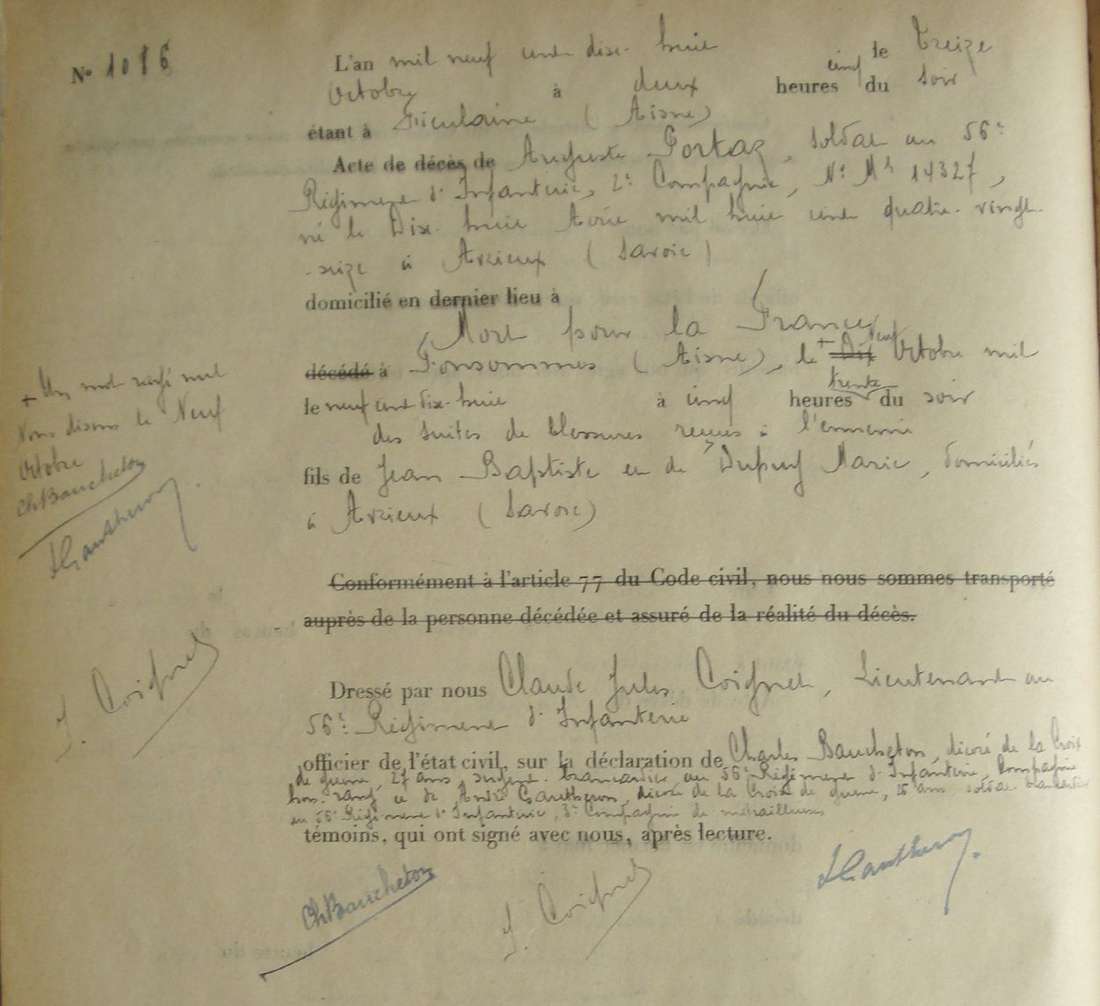 N° 1016
L'an mil neuf cent dix-huit le treize
Octobre à deux heures cinq du soir
étant à (Aisne)
Acte de décès de Auguste Portaz, soldat au 56e
Régiment d'Infanterie, 2e Compagnie, N° Mle 14327,
né le Dix-huit Avril mil huit cent quatre-vingt
-seize à Arvieux (Savoie)
domicilié en dernier lieu à
Mort pour la France
décédé à Fonsommes (Aisne), le + Dix Neuf Octobre mil
le neuf cent dix-huit à cinq heures trente du soir
des suites de blessures reçues à l'ennemi
fils de Jean Baptiste et de Dupuy Marie, domiciliés
à Arvieux (Savoie)
+ Un mot rayé nul
Nous disons le Neuf
Octobre
Ch Baucheton
A Gautheron
J. Coignet
Conformément à l'article 77 du Code civil, nous nous sommes transporté
auprès de la personne décédée et assuré de la réalité du décès.
Dressé par nous Claude Jules Coignet, Lieutenant au
56e Régiment d'Infanterie
officier de l'état civil, sur la déclaration de Charles Baucheton, décoré de la Croix
de guerre, 27 ans, sergent-brancardier au 56e Régiment d'Infanterie, Compagnie
hors-rang et de André Gautheron, décoré de la Croix de guerre, ans, soldat brancardier
au 56e Régiment d'Infanterie, 3e Compagnie de mitrailleuses
témoins, qui ont signé avec nous, après lecture.
Ch Baucheton
J. Coignet
A Gautheron